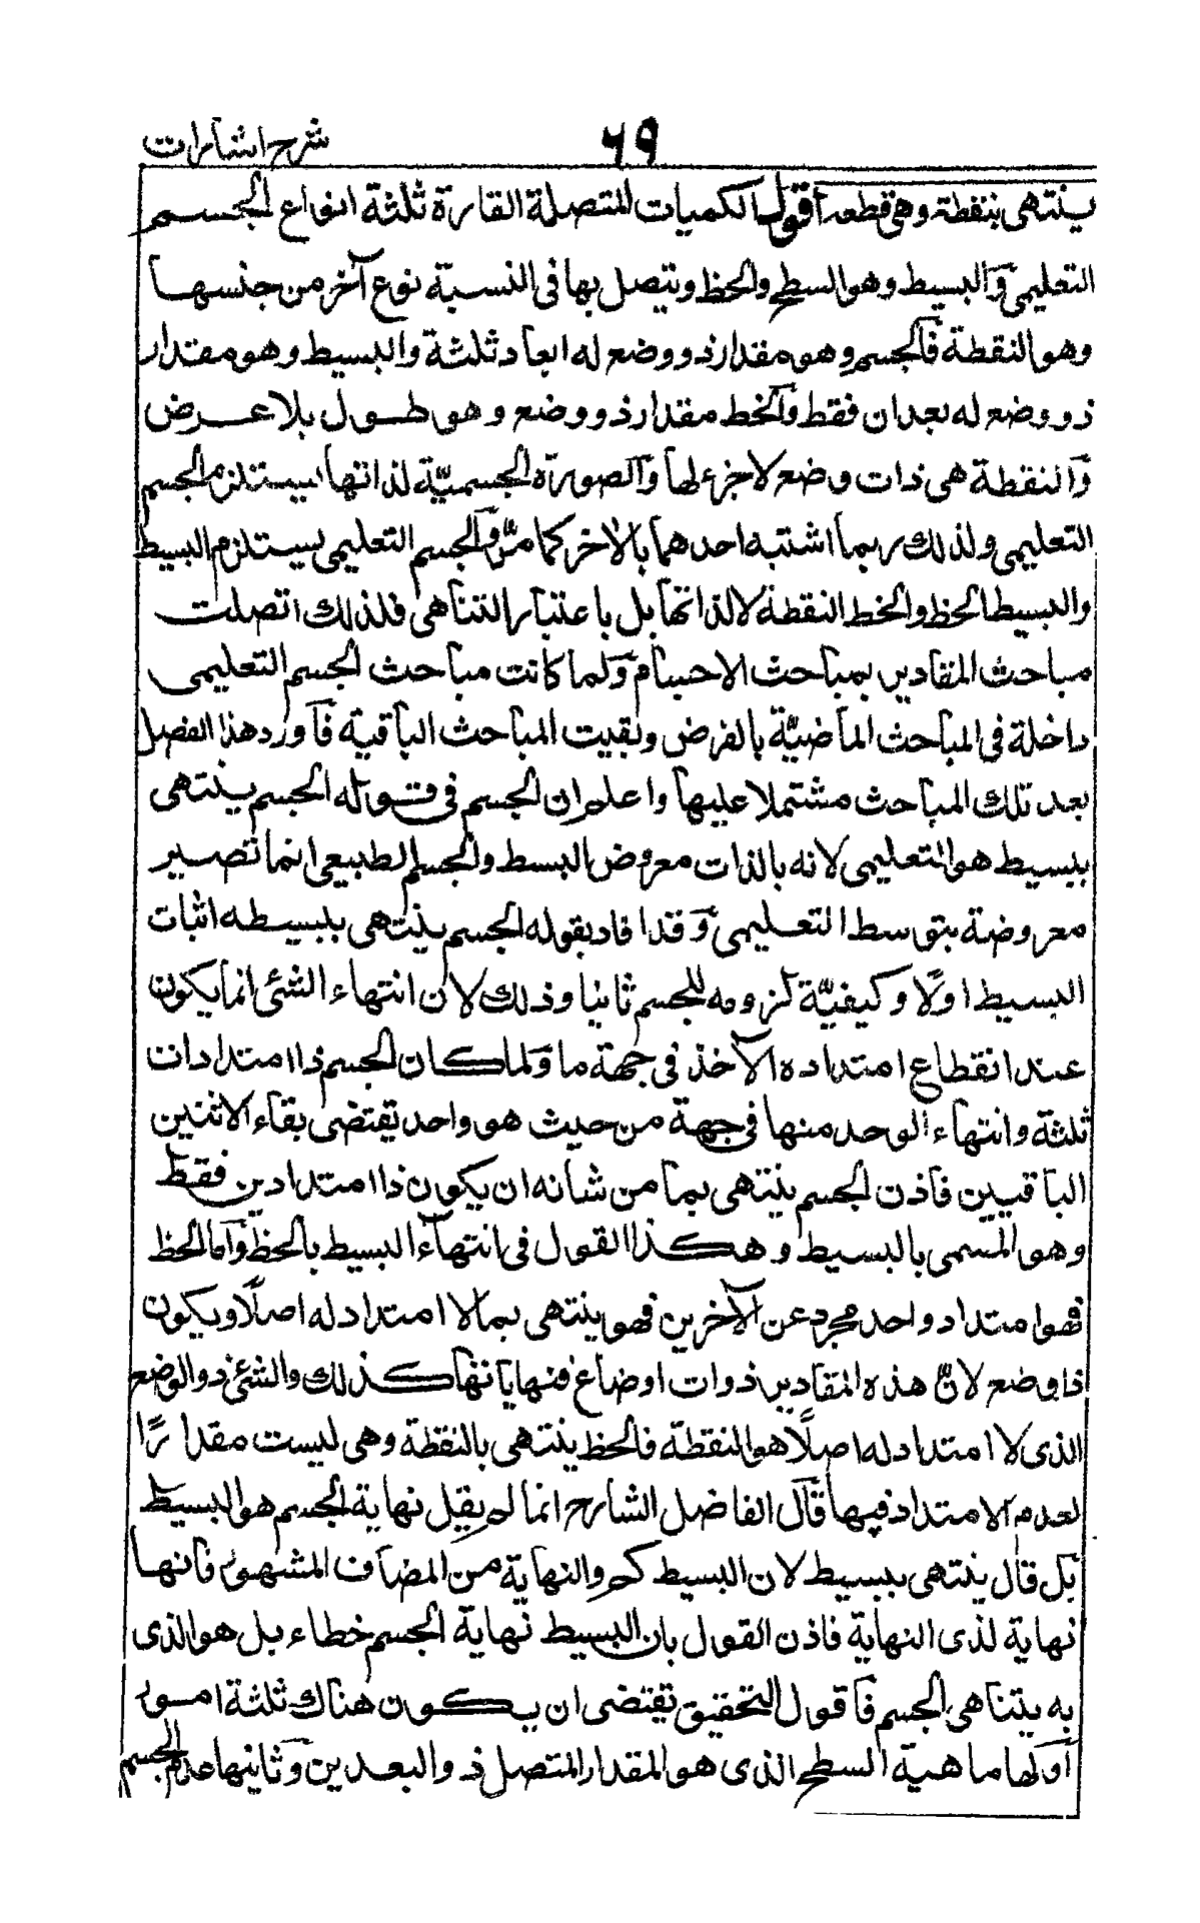 شرح اشارات ٦٩
ينتهى بنقطة وهى قطعه اقول الكميات المتصلة القارة ثلثة انواع الجسم
التعليمى والبسيط وهو السطح والخط ويتصل بها فى النسبة نوع آخر من جنسها
وهو النقطة فالجسم وهو مقدار ذو وضع له ابعاد ثلثة والبسيط وهو مقدار
ذو وضع له بعدان فقط والخط مقدار ذو وضع وهو طول بلا عرض
والنقطة هى ذات وضع لا جزء لها والصورة الجسميّة لذاتها يستلزم الجسم
التعليمى ولذلك ربما اشتبه احدهما بالاخر كما مرّ والجسم التعليمى يستلزم البسيط
والبسيط الخط والخط النقطة لا لذاتها بل باعتبار التناهى فلذلك اتصلت
مباحث المقادير بمباحث الاجسام ولما كانت مباحث الجسم التعليمى
داخلة فى المباحث الماضيّة بالفرض وبقيت المباحث الباقية فاورد هذا الفصل
بعد تلك المباحث مشتملا عليها واعلم ان الجسم فى قوله الجسم ينتهى
ببسيط هو التعليمى لانه بالذات معروض البسط والجسم الطبيعى انما تصير
معروضة بتوسط التعليمى وقد افاد بقوله الجسم ينتهى ببسيطه اثبات
البسيط اولًا وكيفيّة لزومه للجسم ثانيا وذلك لان انتهاء الشئ انما يكون
عند انقطاع امتداده الآخذ فى جهة ما ولما كان الجسم ذا امتدادات
ثلثة وانتهاء الوحد منها فى جهة من حيث هو واحد يقتضى بقاء الاثنين
الباقيين فاذن الجسم ينتهى بما من شانه ان يكون ذا امتدادين فقط
وهو المسمى بالبسيط وهكذا القول فى انتهاء البسيط بالخط واما الخط
فهو امتداد واحد مجرد عن الآخرين فهو ينتهى بما لا امتداد له اصلًا ويكون
ذا وضع لانّ هذه المقادير ذوات اوضاع فنهاياتها كذلك والشئ ذو الوضع
الذى لا امتداد له اصلًا هو النقطة فالخط ينتهى بالنقطة وهى ليست مقدارًا
لعدم الامتداد فيها قال الفاضل الشارح انما لم يقل نهاية الجسم هو البسيط
بل قال ينتهى ببسيط لان البسيط كم والنهاية من المضاف المشهور فانها
نهاية لذى النهاية فاذن القول بان البسيط نهاية الجسم خطاء بل هو الذى
به يتناهى الجسم فاقول التحقيق تقتضى ان يكون هناك ثلثة امور
اولها ماهية السطح الذى هو المقدار المتصل ذو البعدين وثانيها عدم الجسم